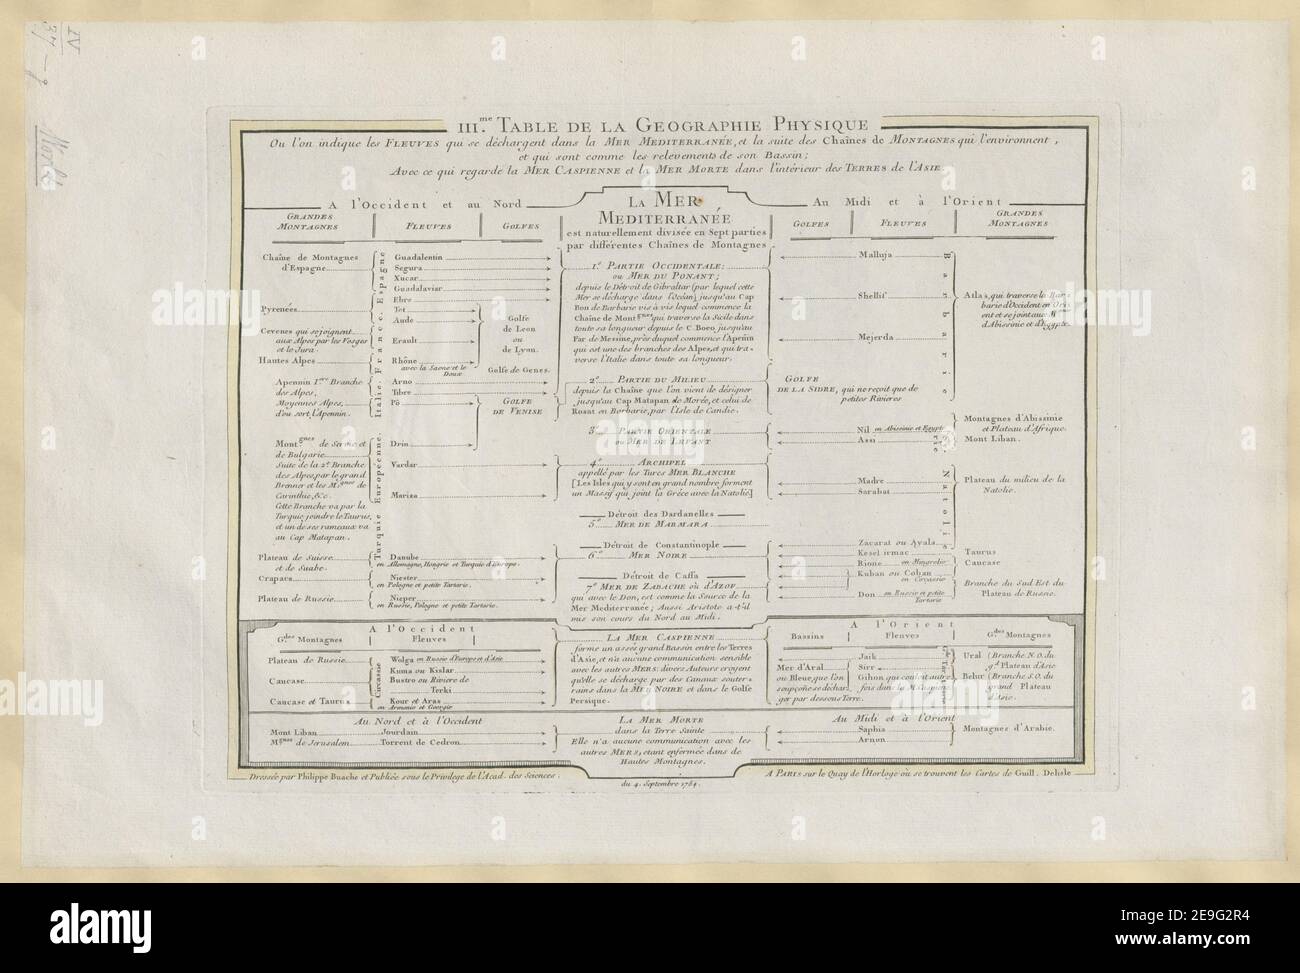 IV
37-g
IIIme. TABLE DE LA GEOGRAPHIE PHYSIQUE
Ou l'on indique les FLEUVES qui se déchargent dans la MER MEDITERRANÉE, et la suite des Chaînes de MONTAGNES qui l'environnent,
et qui sont comme les relevements de son Bassin;
Avec ce qui regarde la MER CASPIENNE et la MER MORTE dans l'intérieur des TERRES de l'ASIE.
A l'Occident et au Nord
GRANDES MONTAGNES
FLEUVES
GOLFES
Chaîne de Montagnes
d'Espagne
Pyrenées
Cevenes qui se joignent
aux Alpes par les Vosges
et le Jura
Hautes Alpes
Apennin 1ere Branche
des Alpes,
Moyennes Alpes,
d'ou sort l'Apennin.
Montgnes de Servie et
de Bulgarie
Suite de la 2e Branche
des Alpes, par le grand
Brenner et les Mtgnes de
Carinthie, &c.
Cette Branche va par la
Turquie joindre le Taurus,
et un de ses rameaux va
au Cap Matapan.
Plateau de Suisse
et de Suabe
Crapacs
Plateau de Russie
Espagne
France
Italie
Turquie Européenne
Guadalentin
Segura
Xucar
Guadalaviar
Ebre
Tet
Aude
Erault
Rhône
avec la Saone et le
Doux
Arno
Tibre
Pô
Drin
Vardar
Mariza
Danube
en Allemagne, Hongrie et Turquie d'Europe
Niester
en Pologne et petite Tartarie
Nieper
en Russie, Pologne et petite Tartarie
Golfe
de Leon
ou
de Lyon.
Golfe de Genes.
GOLFE
DE VENISE
LA MER
MEDITERRANÉE
est naturellement divisée en Sept parties
par différentes Chaînes de Montagnes
1e PARTIE OCCIDENTALE:
ou MER DU PONANT;
depuis le Détroit de Gibraltar (par lequel cette
Mer se décharge dans l'Océan) jusqu'au Cap
Bon de Barbarie vis à vis lequel commence la
Chaîne de Montgnes qui traverse la Sicile dans
toute sa longueur depuis le C. Boeo, jusqu'au
Far de Messine, près duquel commence l'Apenin
qui est une des branches des Alpes, et qui tra-
verse l'Italie dans toute sa longueur.
2e PARTIE DU MILIEU
depuis la Chaîne que l'on vient de désigner
jusqu'au Cap Matapan de Morée, et celui de
Rosat en Barbarie, par l'Isle de Candie.
3e PARTIE ORIENTALE
ou MER DE LEVANT
4e ARCHIPEL
appellé par les Turcs MER BLANCHE
[Les Isles qui y sont en grand nombre forment
un Massif qui joint la Gréce avec la Natolie]
Détroit des Dardanelles
5e MER DE MARMARA
Détroit de Constantinople
6e MER NOIRE
Détroit de Caffa
7e MER DE ZABACHE ou d'AZOF
qui avec le Don, est comme la Source de la
Mer Mediterranée; Aussi Aristote a-t'il
mis son cours du Nord au Midi.
Au Midi et à l'Orient
GOLFES
FLEUVES
GRANDES
MONTAGNES
Malluja
Shellif
Mejerda
GOLFE
DE LA SIDRE, qui ne reçoit que de
petites Rivieres
Nil en Abissinie et Egypte
Assi
Madre
Sarabat
Zacarat ou Ayala
Kesel irmac
Rione en Mingrelie
Kuban ou Coban
en Circassie
Don en Russie et petite
Tartarie
Barbarie
Natolie
Atlas, qui traverse la Bar-
barie d'Occident en Ori-
ent et se joint aux Mgnes
d'Abissinie et d'Egypte.
Montagnes d'Abissinie
et Plateau d'Afrique.
Mont Liban.
Plateau du milieu de la
Natolie.
Taurus
Caucase
Branche du Sud Est du
Plateau de Russie.
A l'Occident
Gdes Montagnes
Fleuves
Plateau de Russie
Caucase
Caucase et Taurus
Circassie
Wolga en Russie d'Europe et d'Asie
Kuma ou Kislar
Bustro ou Riviere de
Terki
Kour et Aras
en Armenie et Georgie
LA MER CASPIENNE
forme un asses grand Bassin entre les Terres
d'Asie, et n'a aucune communication sensible
avec les autres MERS: divers Auteurs croyent
qu'elle se décharge par des Canaux souter-
rains dans la MER NOIRE et dans le Golfe
Persique.
A l'Orient
Bassins
Fleuves
Gdes Montagnes
Mer d'Aral
ou Bleue, que l'on
soupçonne se déchar-
ger par dessous Terre.
Jaik
Sirr
Gihon qui couloit autre
fois dans la M. Caspiene
Ural (Branche N.O. du
gd Plateau d'Asie
Belur (Branche S.O. du
grand Plateau
d'Asie.
Au Nord et à l'Occident
Mont Liban
Jourdain
Mgnes de Jerusalem
Torrent de Cedron
LA MER MORTE
dans la Terre Sainte
Elle n'a aucune communication avec les
autres MERS, etant enfermée dans de
Hautes Montagnes.
Au Midi et à l'Orient
Saphia
Arnon
Montagnes d'Arabie.
Dressée par Philippe Buache et Publiée sous le Privilege de l'Acad. des Sciences.
du 4. Septembre 1754.
A PARIS sur le Quay de l'Horloge où se trouvent les Cartes de Guill. Delisle
alamy
Image ID: 2E9G2R4
www.alamy.com